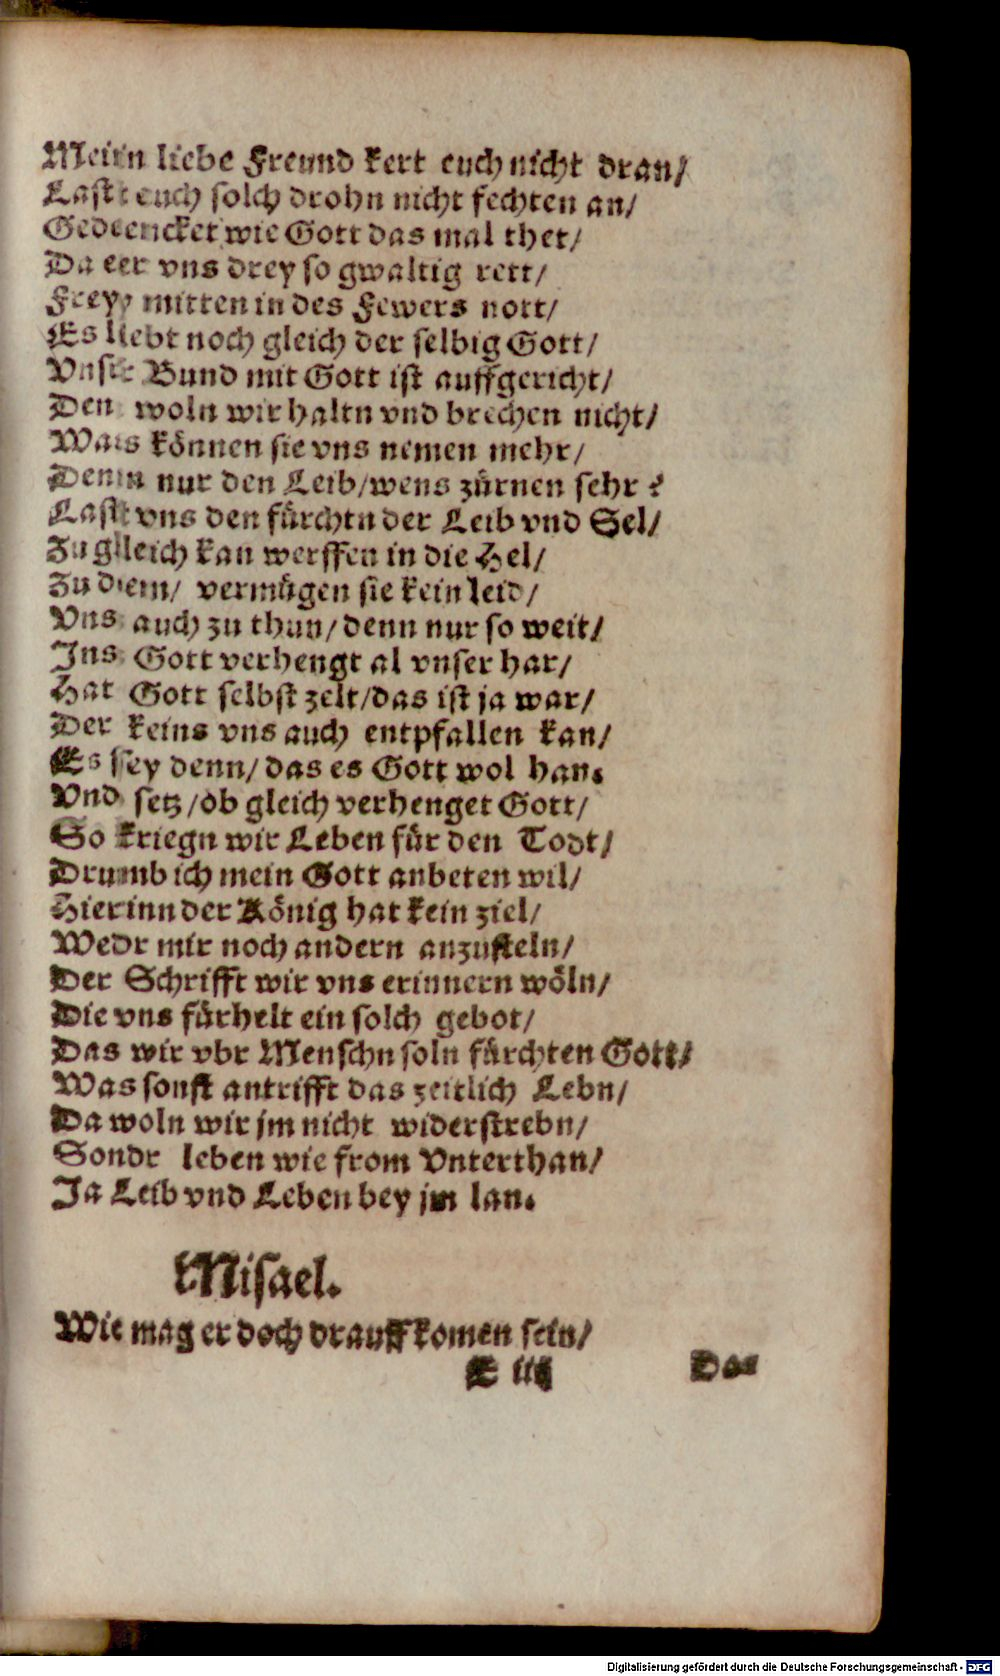 Mein liebe Freund kert euch nicht dran/
Last euch solch drohn nicht fechten an/
Gedencket wie Gott das mal thet/
Da er vns drey so gwaltig rett/
Frey mitten in des Fewers nott/
Es liebt noch gleich der selbig Gott/
Vnser Bund mit Gott ist auffgericht/
Den woln wir haltn vnd brechen nicht/
Was können sie vns nemen mehr/
Denn nur den Leib/wens zürnen sehr?
Last vns den fürchtn der Leib vnd Sel/
Zu gleich kan werffen in die Hel/
Zu dem/ vermügen sie kein leid/
Vns auch zu thun/denn nur so weit/
Ins Gott verhengt al vnser har/
Hat Gott selbst zelt/das ist ja war/
Der keins vns auch entpfallen kan/
Es sey denn/das es Gott wol han.
Vnd setz/ob gleich verhenget Gott/
So kriegn wir Leben für den Todt/
Drumb ich mein Gott anbeten wil/
Hierinn der König hat kein ziel/
Wedr mir noch andern anzusteln/
Der Schrifft wir vns erinnern wöln/
Die vns fürhelt ein solch gebot/
Das wir vbr Menschn soln fürchten Gott/
Was sonst antrifft das zeitlich Lebn/
Da woln wir jm nicht widerstrebn/
Sondr leben wie from Vnterthan/
Ja Leib vnd Leben bey jm lan.
Misael.
Wie mag er doch drauff komen sein/
E iij Das
Digitalisierung gefördert durch die Deutsche Forschungsgemeinschaft - DFG